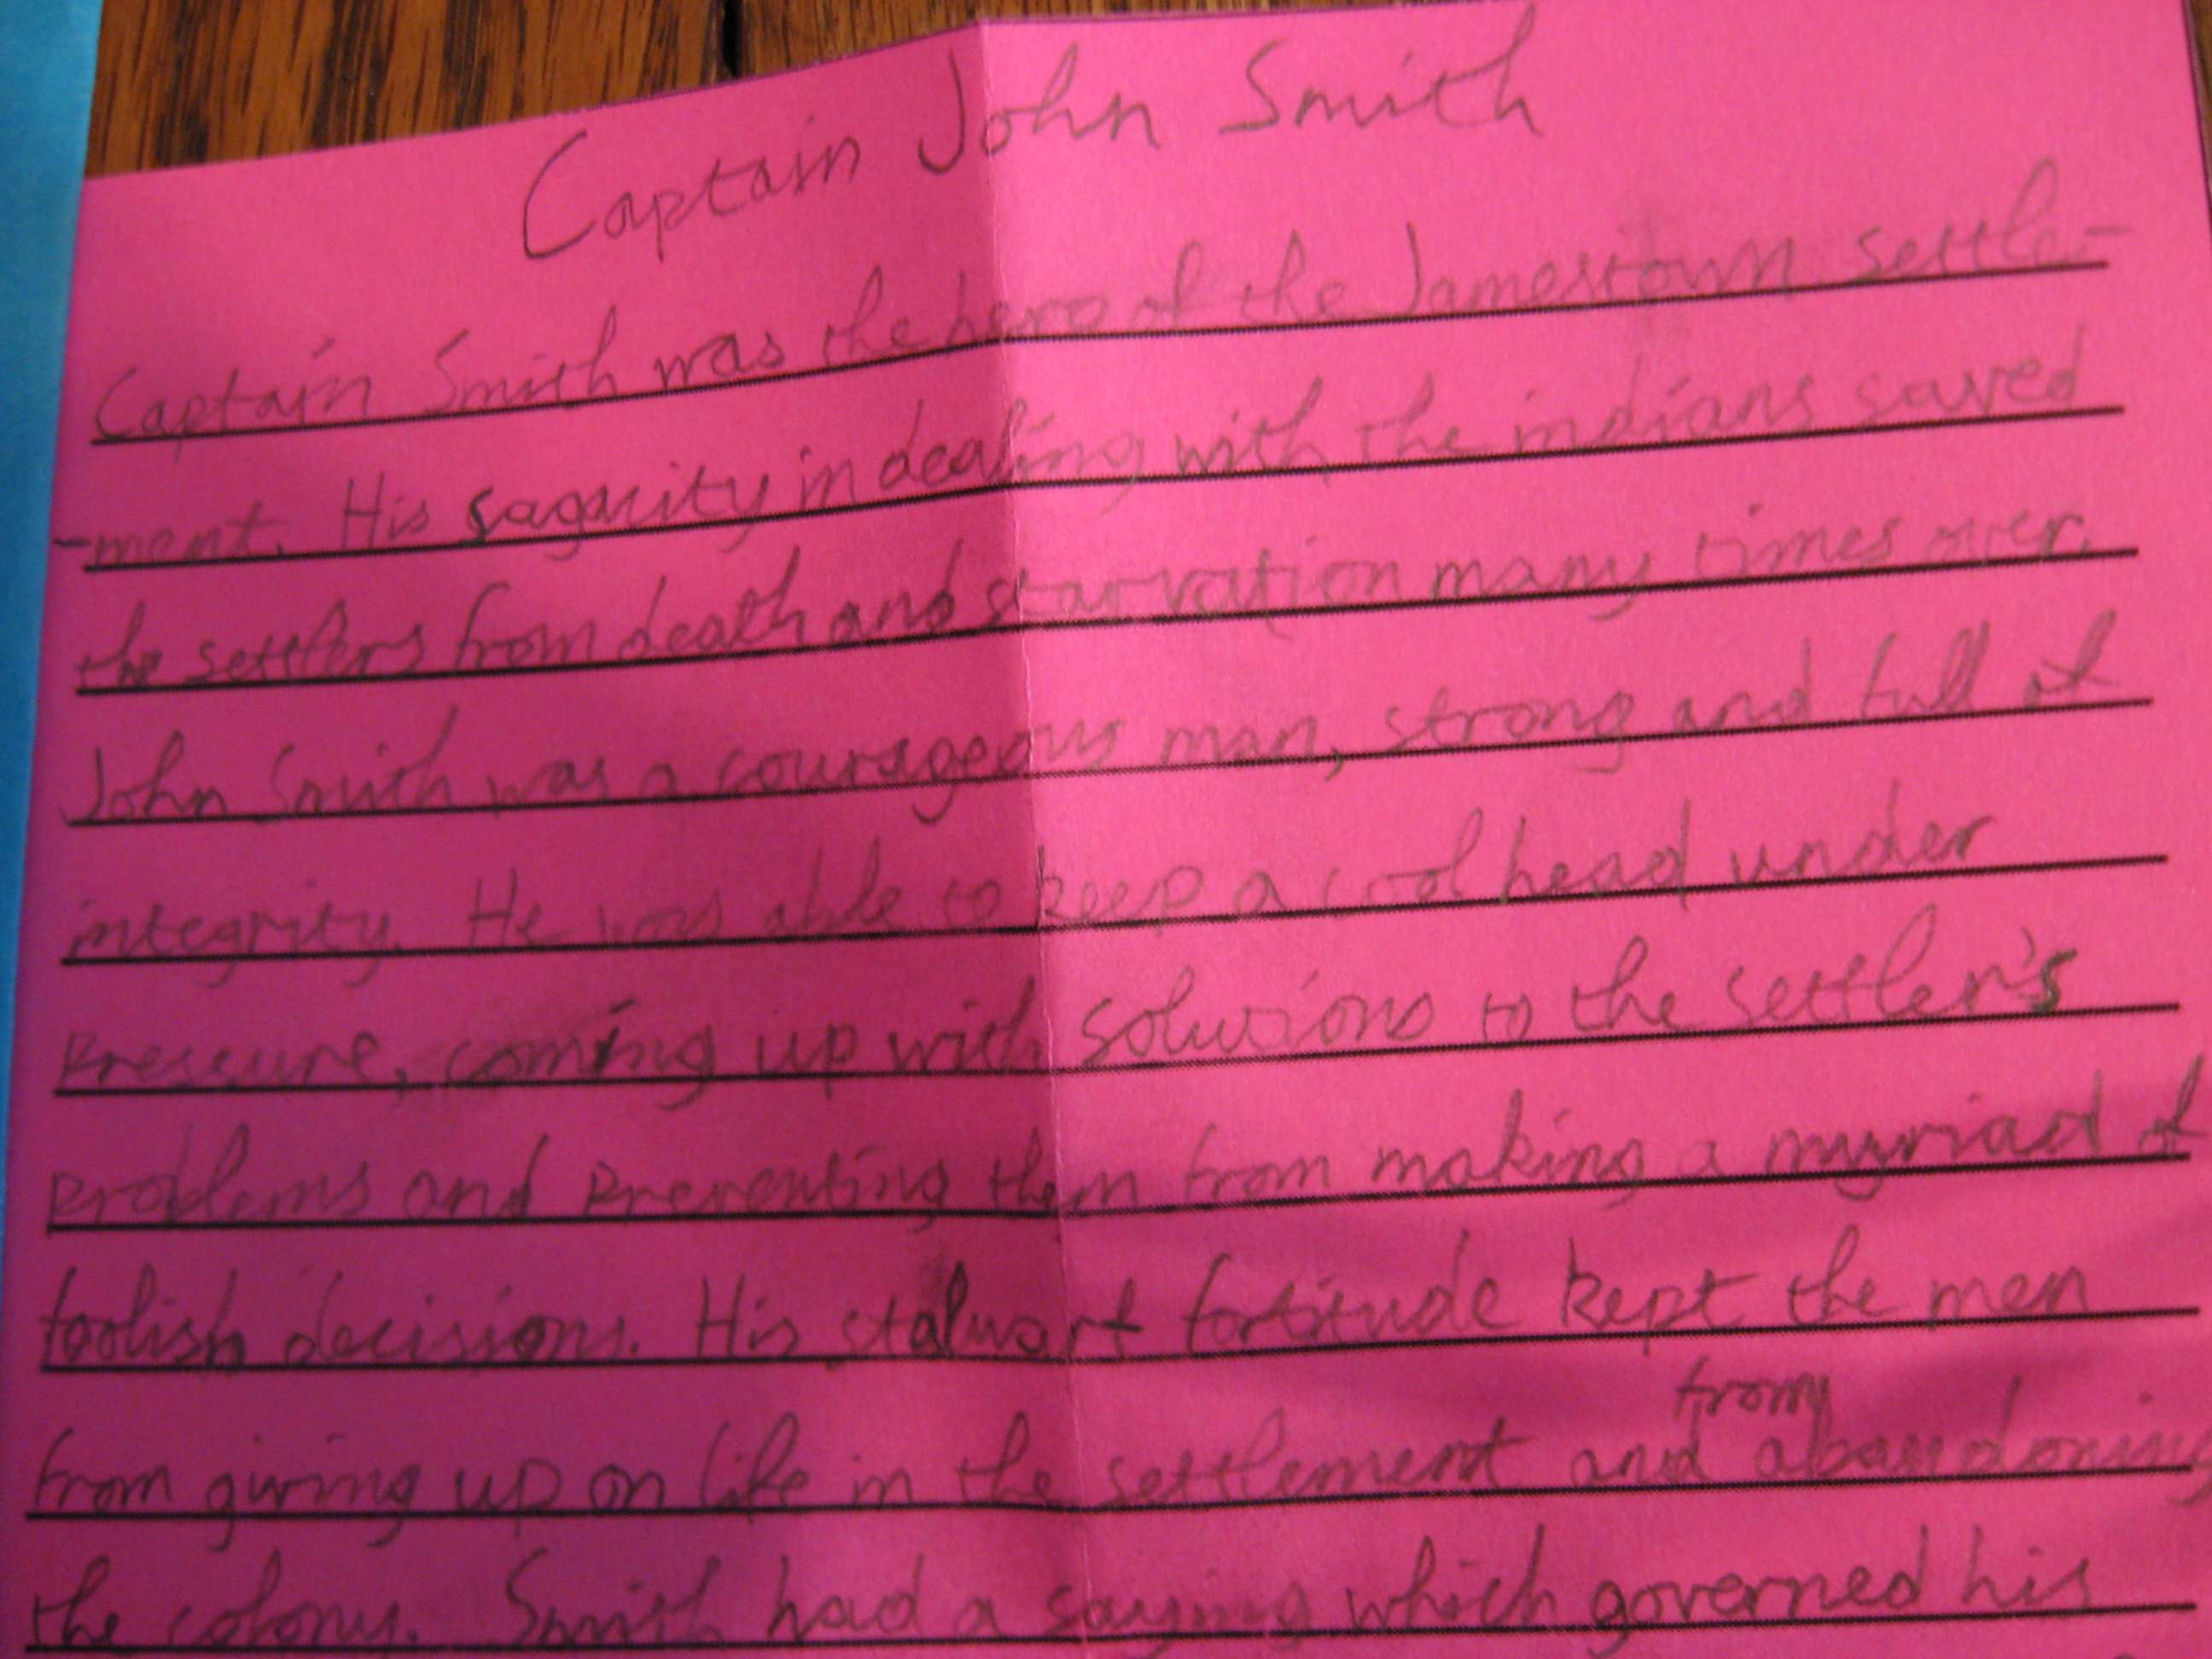 Captain John Smith
Captain Smith was the hero of the Jamestown settle-
-ment. His sagacity in dealing with the indians saved
the settlers from death and starvation many times over.
John Smith was a courageous man, strong and full of
integrity. He was able to keep a cool head under
pressure, coming up with solutions to the settler's
problems and preventing them from making a myriad of
foolish decisions. His stalwart fortitude kept the men
from
from giving up on life in the settlement and abandoning
the colony. Smith had a saying which governed his